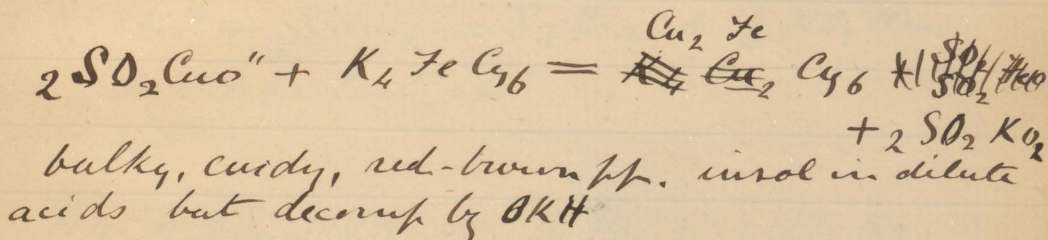 Cu₂ Fe
2SO₂Cuo" + K₄FeCy₆ = K₄ Cu₂ Cy₆
+ 2 SO₂ Ko₂
bulky, curdy, red-brown pp. insol in dilute
acids but decomp by OKH